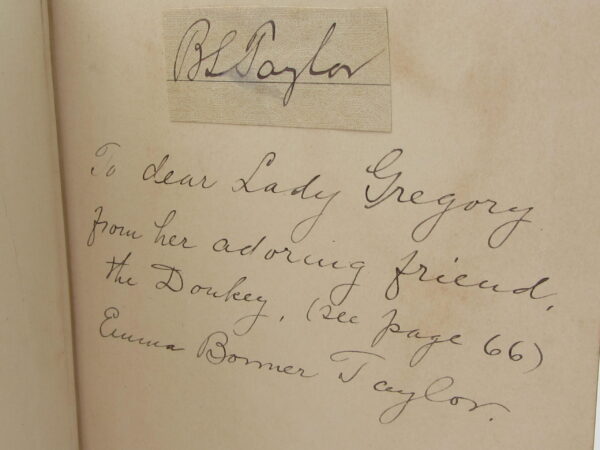 BLTaylor
To dear Lady Gregory
from her adoring friend,
the Donkey. (see page 66)
Emma Bonner Taylor.